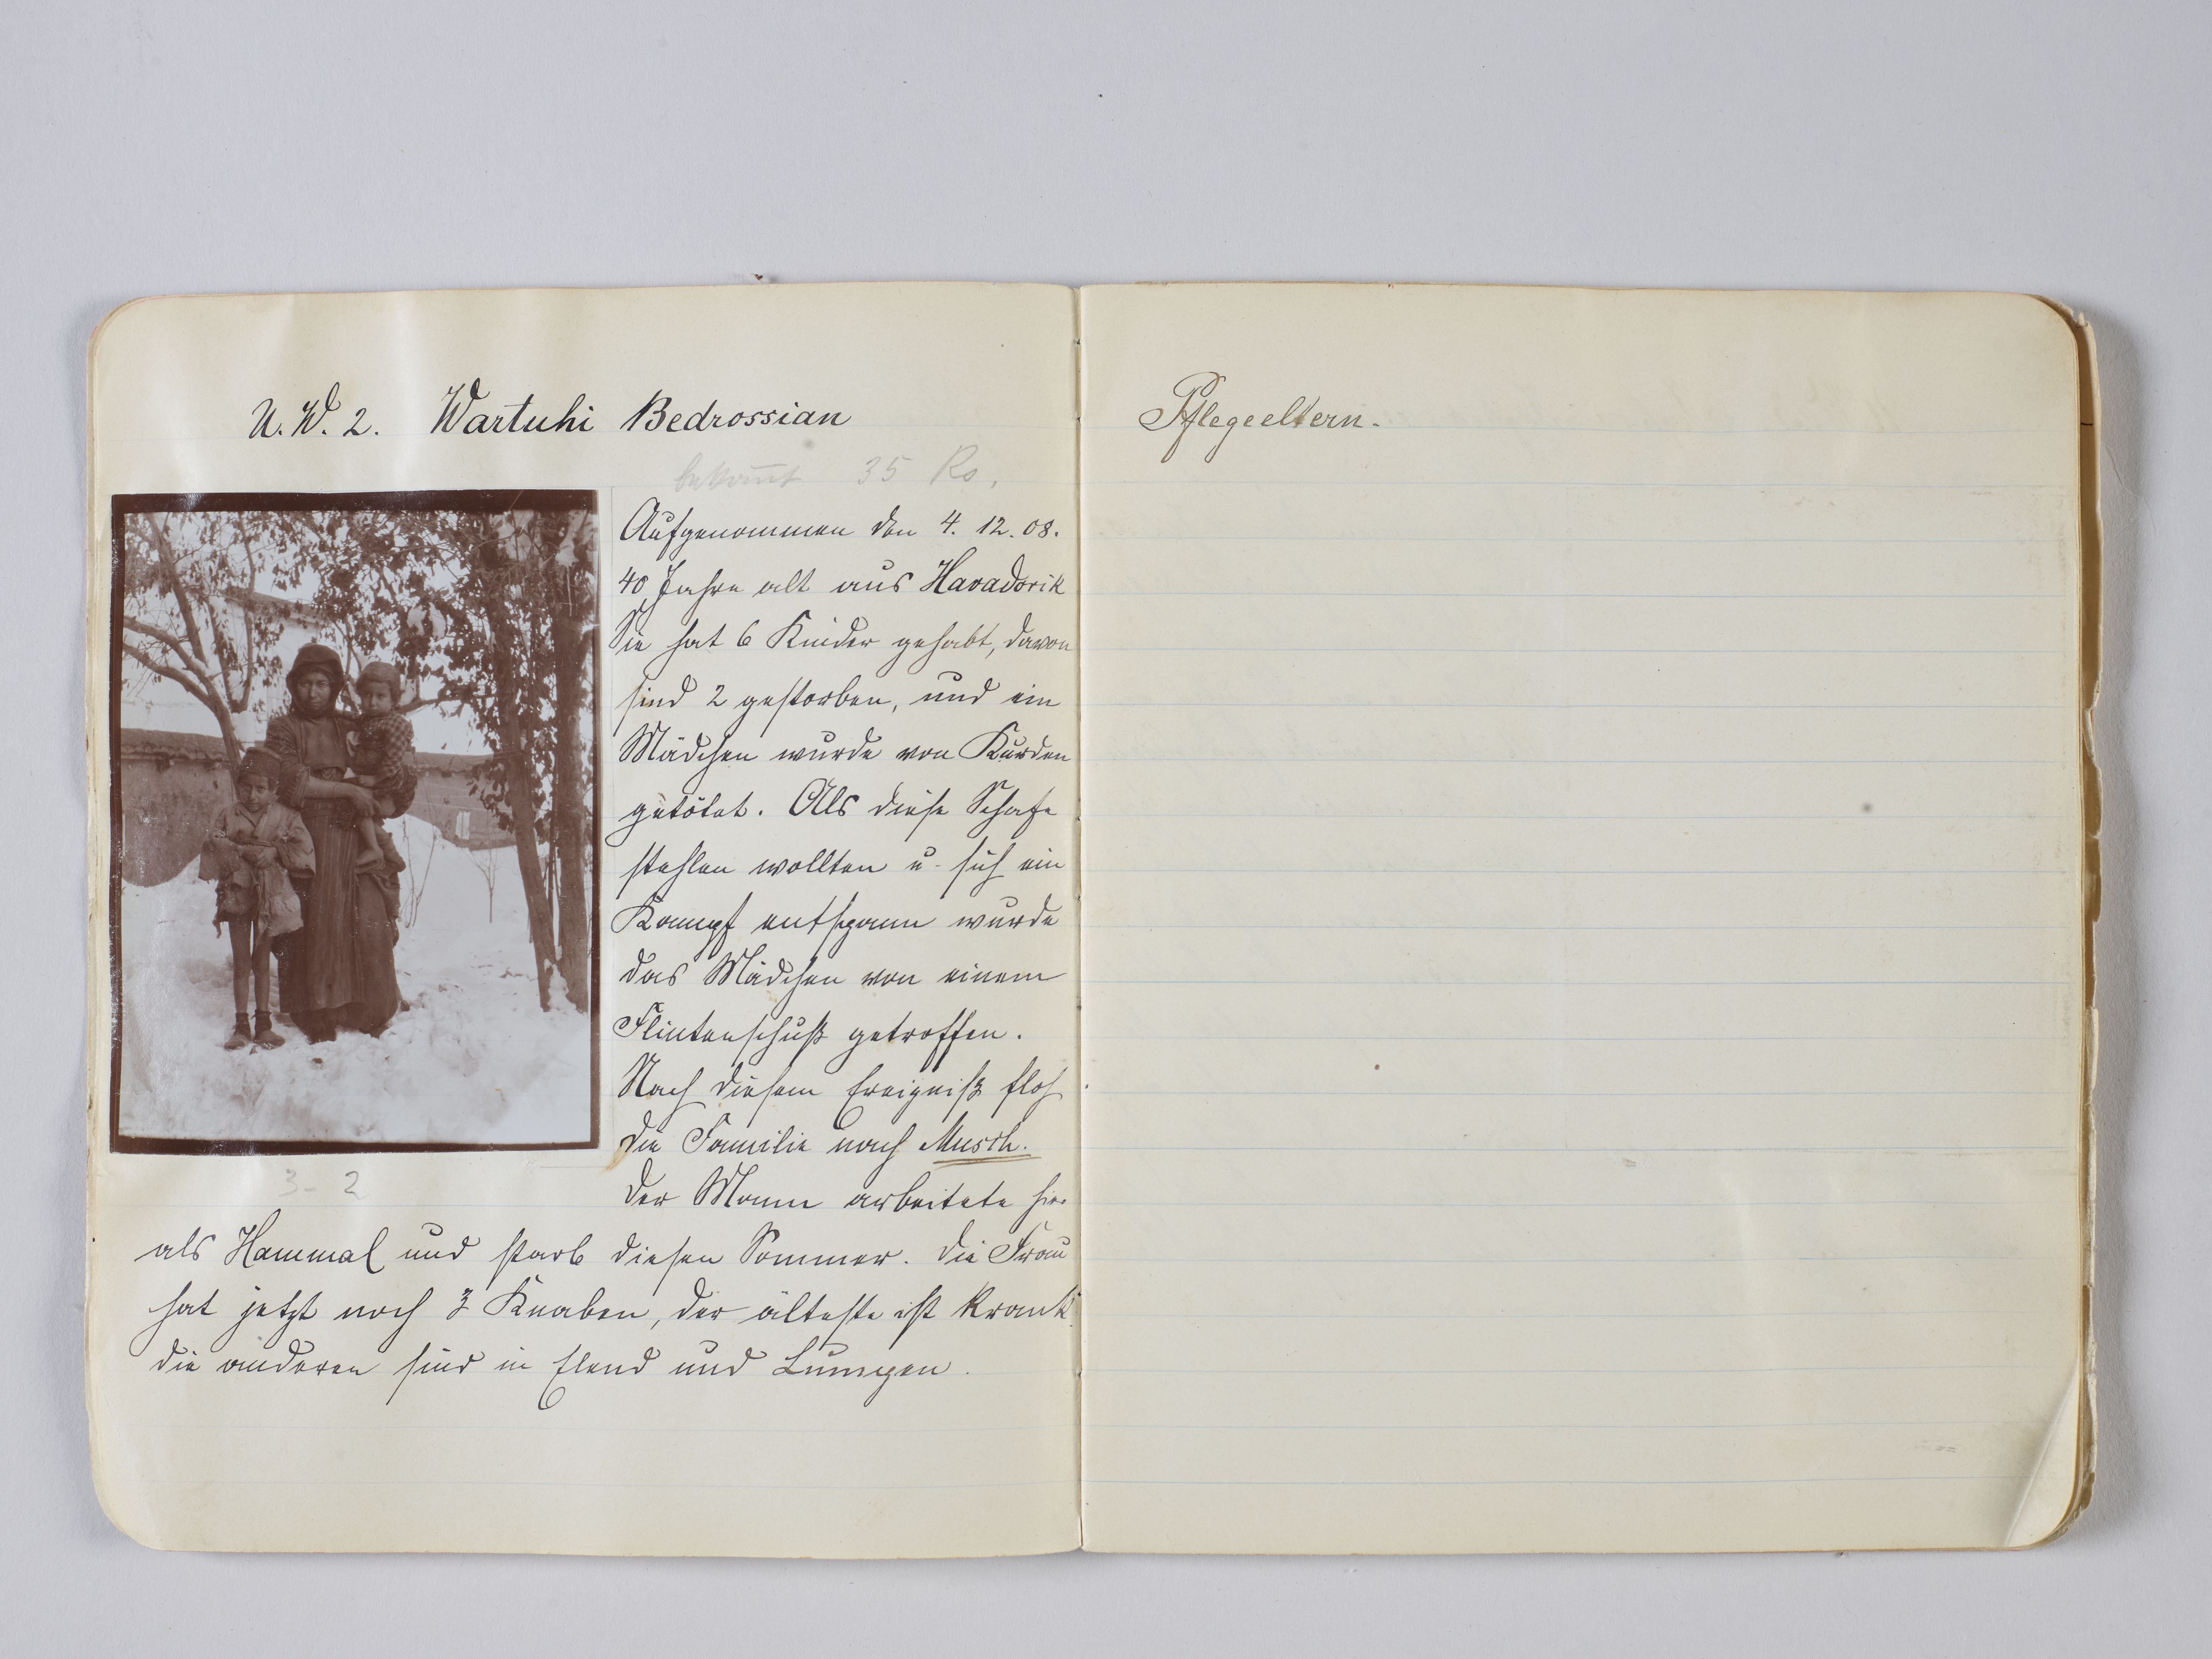 U. W. 2. Wartuhi Bedrossian
bekom̄t 35 Ro.
Aufgenommen den 4. 12. 08.
40 Jahre alt aus Havadorik
Sie hat 6 Kinder gehabt, davon
sind 2 gestorben, und ein
Mädchen wurde von Kurden
getötet. Als diese Schafe
stehlen wollten u. sich ein
Kampf entspann wurde
das Mädchen von einem
Flintenschuß getroffen.
Nach diesem Ereigniß floh
die Familie nach Musch.
Der Mann arbeitete hier
3 - 2
als Hammal und starb diesen Sommer. Die Frau
hat jetzt noch 3 Knaben, der älteste ist krank
die anderen sind in Elend und Lumpen.
Pflegeeltern.